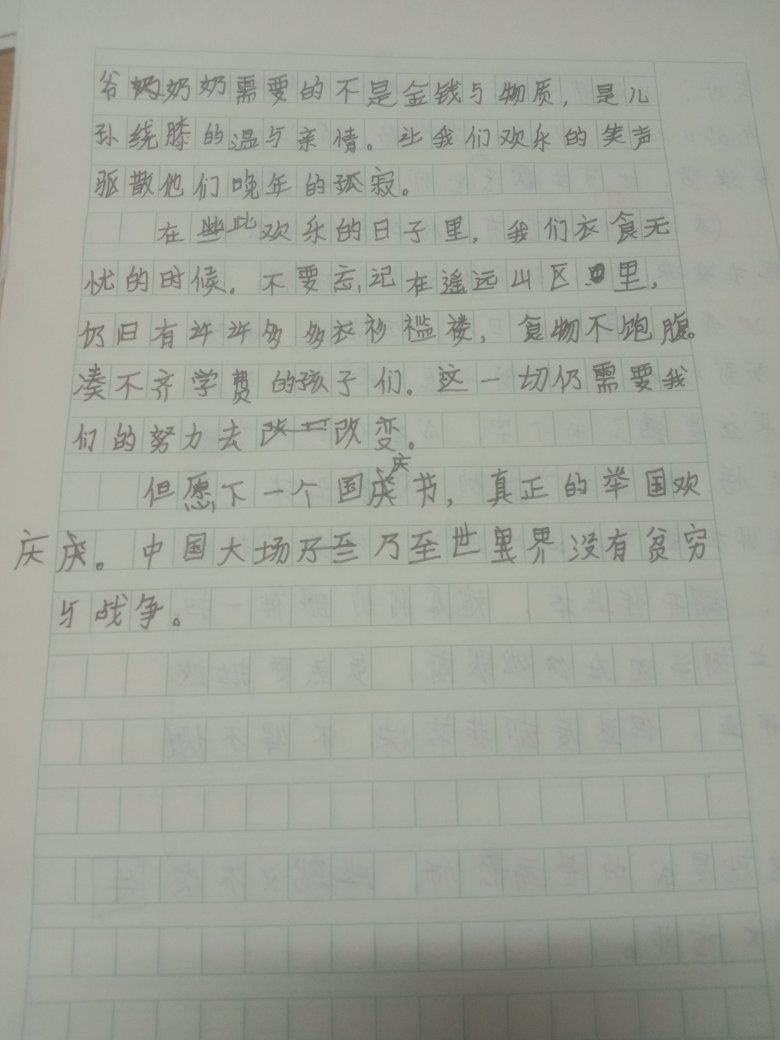 爷奶奶需要的不是金钱与物质，是儿
孙绕膝的温与亲情。让我们欢乐的笑声
驱散他们晚年的孤寂。
在此欢乐的日子里，我们衣食无
忧的时候。不要忘记在遥远山区里，
仍旧有许许多多衣衫褴褛，食物不饱腹。
凑不齐学费的孩子们。这一切仍需要我
们的努力去改变。
但愿下一个国庆节，真正的举国欢
庆庆。中国大场乃至世界没有贫穷
与战争。